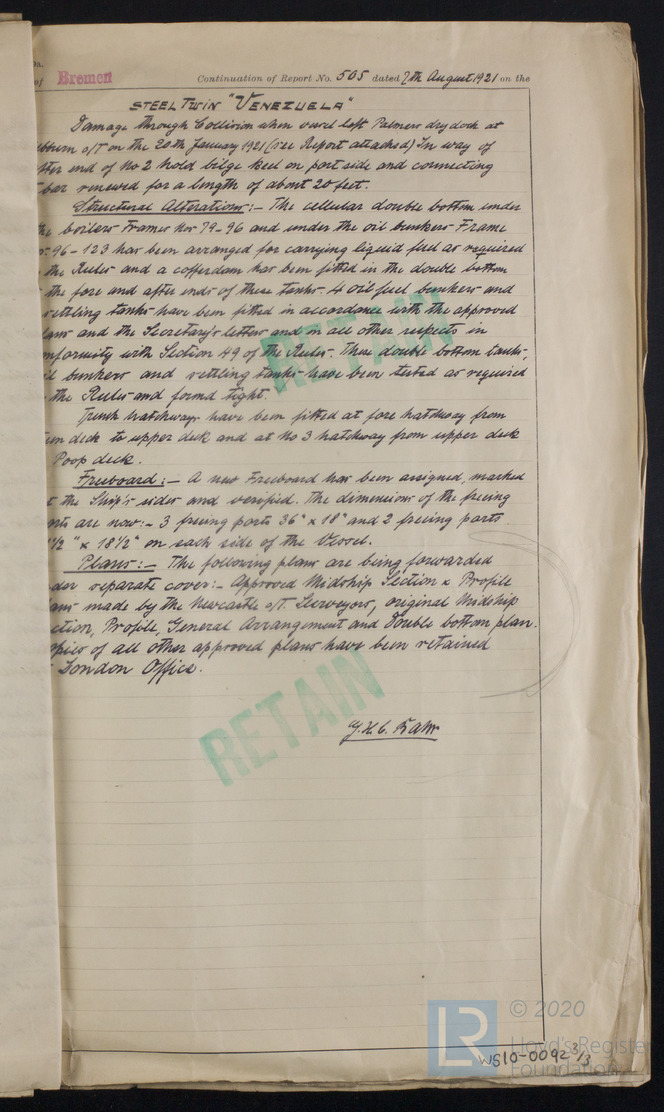 Bremen
Continuation of Report No. 505 dated 7th August 1921 on the
STEEL TWIN "VENEZUELA"
Damage through Collision when vessel left Palmers dry dock at
o/T on the 20th January 1921 (see Report attached) In way of
after end of No 2 hold bilge keel on port side and connecting
bar renewed for a length of about 20 feet.
Structural Alterations:- The cellular double bottom under
the boilers Frames Nos 79-96 and under the oil bunkers Frame
96-123 has been arranged for carrying liquid fuel as required
the Rules and a cofferdam has been fitted in the double bottom
the fore and after ends of these tanks. 4 oil fuel bunkers and
settling tanks have been fitted in accordance with the approved
and the Secretary's letters and in all other respects in
conformity with Section 49 of the Rules. These double bottom tanks,
bunkers and settling tanks have been tested as required
the Rules and found tight.
Trunk hatchways have been fitted at fore hatchway from
deck to upper deck and at No 3 hatchway from upper deck
Poop deck.
Freeboard:- A new Freeboard has been assigned, marked
the Ship's sides and verified. The dimensions of the freeing
ports are now:- 3 freeing ports 36" x 18" and 2 freeing ports
1/2" x 18 1/2" on each side of the Vessel.
Plans:- The following plans are being forwarded
under separate cover:- Approved Midship Section & Profile
made by the Newcastle o/T. Surveyors, original Midship
Section, Profile, General Arrangement and Double bottom plan.
Copies of all other approved plans have been retained
London Office.
RETAIN
RETAIN
LR
© 2020
Lloyd's Register
Foundation
WS10-0092 3/3